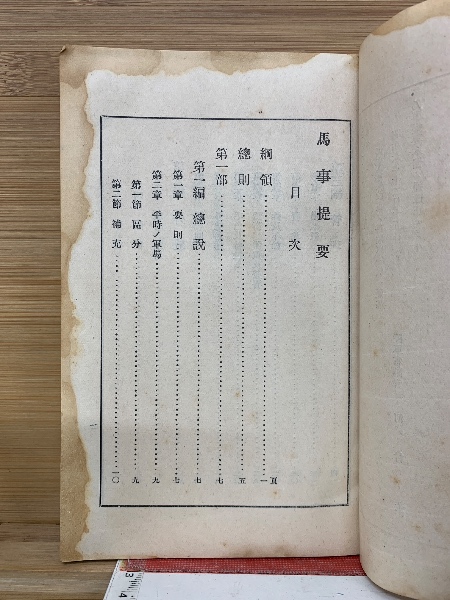 馬事提要
目次
綱領……一頁
總則……五
第一部……七
第一編 總說……七
第一章 要則……七
第二章 平時ノ軍馬……九
第一節 區分……九
第二節 補充……一〇